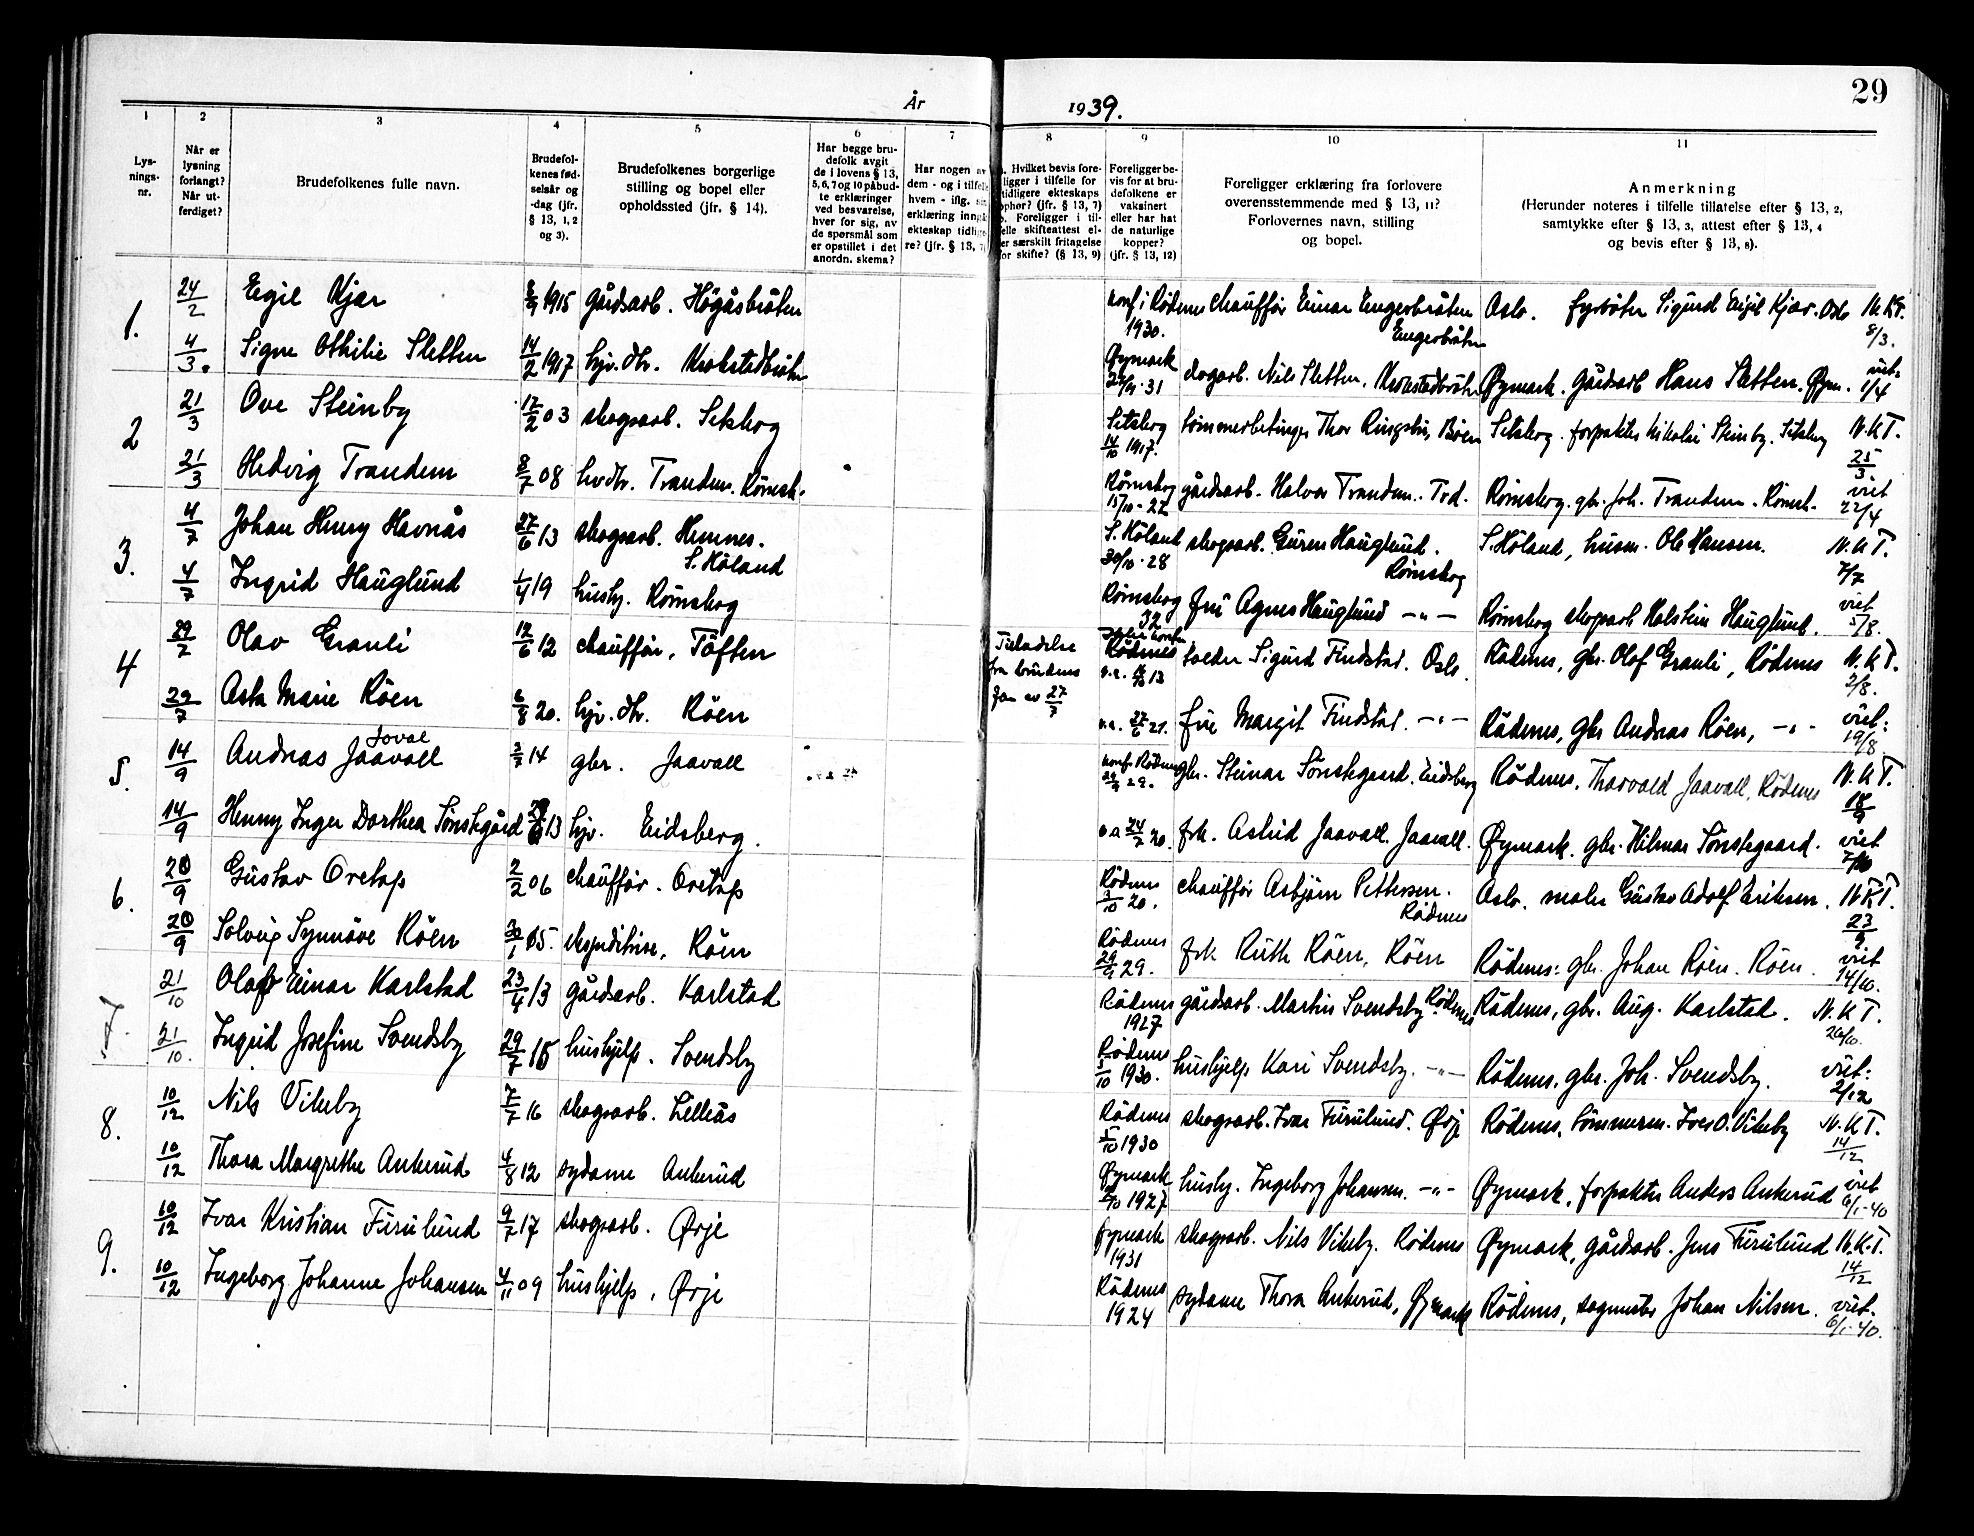 29
År 1939.
1 2 3 4 5 6 7 8 9 10 11
Lys-
nings-
nr.
Når er
lysning
forlangt?
Når ut-
ferdiget?
Brudefolkenes fulle navn.
Brudefol-
kenes fød-
selsår og
-dag (jfr.
§ 13, 1, 2
og 3).
Brudefolkenes borgerlige
stilling og bopel eller
opholdssted (jfr. § 14).
Har begge bru-
defolk avgit
de i lovens § 13,
5, 6, 7 og 10 påbud-
te erklæringer
ved besvarelse,
hver for sig, av
de spørsmål som
er opstillet i det
anordn. skema?
Har nogen av
dem - og i tilfelle
hvem - iflg. sin
erklæring inngå
ekteskap tidlige-
re? (jfr. § 13, 7)
. Hvilket bevis fore-
ligger i tilfelle for
tidligere ekteskaps
ophør? (jfr. § 13, 7)
. Foreligger i til-
elle skifteattest el-
er særskilt fritagelse
or skifte? (§ 13, 9)
Foreligger be-
vis for at bru-
defolkene er
vaksinert
eller har hat
de naturlige
kopper?
(jfr. § 13, 12)
Foreligger erklæring fra forlovere
overensstemmende med § 13, 11?
Forlovernes navn, stilling
og bopel.
Anmerkning
(Herunder noteres i tilfelle tillatelse efter § 13, 2,
samtykke efter § 13, 3, attest efter § 13, 4
og bevis efter § 13, 8).
1. 24/2 Eigil Kjær 8/9 1915 gårdsarb. Högåsbråten konf i Rödenes 1930. chauffør Einar Engerbråten Engerbråten Oslo. fyrböter Sigurd Eigil Kjær. Oslo N.K.T. 8/3.
4/3. Signe Othilie Sletten 14/2 1917 hjv. dtr. Krokstedbråten Øymark 31 skogarb. Nils Sletten, Krokstedbråten Øymark. gårdsarb Hans Sletten. Øym. viet 1/4
2 21/3 Ove Steinby 17/2 03 skogsarb. Setskog Setskog 14/10 1917. Tömmerbetinger Thor Ringsby, Båen Setskog. forpakter Nikolai Steinby. Setskog N.K.T. 25/3
21/3 Hedvig Trandem 8/7 08 hvdtr. Trandem. Römsk. Römskog 15/10 - 22 gårdsarb. Halvor Trandem. Trd. Römskog. gbr. Joh. Trandem. Römsk. viet 22/4
3. 4/7 Johan Henry Havnås 27/6 13 skogsarb. Hemnes. S. Höland S. Höland 30/10 - 28 skogsarb. Gúren Hauglund. Römskog S. Höland, husm. Ole Hansen. N.K.T. 7/7
4/7 Ingrid Hauglund 1/4 19 hushj. Römskog Römskog 32 frú Agnes Hauglund -"- Römskog skogsarb Halstein Hauglund. viet 5/8.
4 29/7 Olav Grauli 12/6 12 chauffør, Töften Tilladelse fra brudens far av 27/7 Rödenes 13 Sigurd Findstad. Oslo. Rödenes, gbr. Olaf Grauli, Rödenes N.K.T. 2/8.
29/7 Asta Marie Röen 6/8 20. hjv. dtr. Röen v.a. 27/6 21. frue Margit Findstad -"- Rödenes, gbr Andreas Röen, -"- viet: 19/8.
5. 14/9 Andreas Jaavall Joval 3/7 14 gbr. Jaavall konf. Rödenes 29. gbr. Steinar Sönstegaard. Eidsberg Rödenes. Thorvald Jaavall, Rödenes N.K.T. 18/9
14/9 Henny Inger Dorthea Sönstegård 13 hjv. Eidsberg. v.a 24/7 20. frk. Astrid Jaavall. Jaavall. Øymark. gbr. Hilmar Sönstegaard. viet 7/10
6. 20/9 Gustav Oretop 2/2 06 chauffør. Oretop Rödenes 3/10 20. chauffør Asbjörn Pettersen. Rödenes Oslo. maler Gustav Adolf Eriksen. N.K.T. 23/9
20/9 Solveig Synnöve Röen 30/1 15. ekspeditrise, Röen Rödenes 29/9 29. frk Ruth Röen, Röen Rödenes: gbr. Johan Röen. Röen. viet 14/10.
7. 21/10 Olaf Einar Karlstad 23/4 13 gårdsarb. Karlstad Rödenes 1927 gårdsarb. Martin Svendsby Rödenes Rödenes, gbr. Aug. Karlstad. N.K.T. 26/10.
21/10. Ingrid Josefine Svendsby 29/7 15 hushjelp. Svendsby Rödenes 5/10 1930. hushjelp Kari Svendsby. -"- Rödenes, gbr. Joh. Svendsby. viet: 2/12
8. 10/12 Nils Vikeby 7/7 16 skogsarb. Lilleås Rödenes 5/10 1930 skogsarb. Ivar Furulund. Ørje Rödenes, tömmerm. Iver O. Vikeby N.K.T. 14/12
10/12 Thora Margrethe Ankerud 4/8 12 sydame Ankerud Øymark 1927 hushj. Ingeborg Johansen. -"- Øymark, forpakter Anders Ankerud viet 6/1-40
9. 10/12 Ivar Kristian Furulund 9/7 17 skogsarb. Ørje Øymark 1931 skogsarb. Nils Vikeby. Rödenes Øymark, gårdsarb. Jens Furulund N.K.T. 14/12
10/12 Ingeborg Johanne Johansen 4/11 09 hushjelp, Ørje Rödenes 1924 sydame Thora Ankerud, Øymark Rödenes, sagmester Johan Nilsen. viet. 6/1-40.